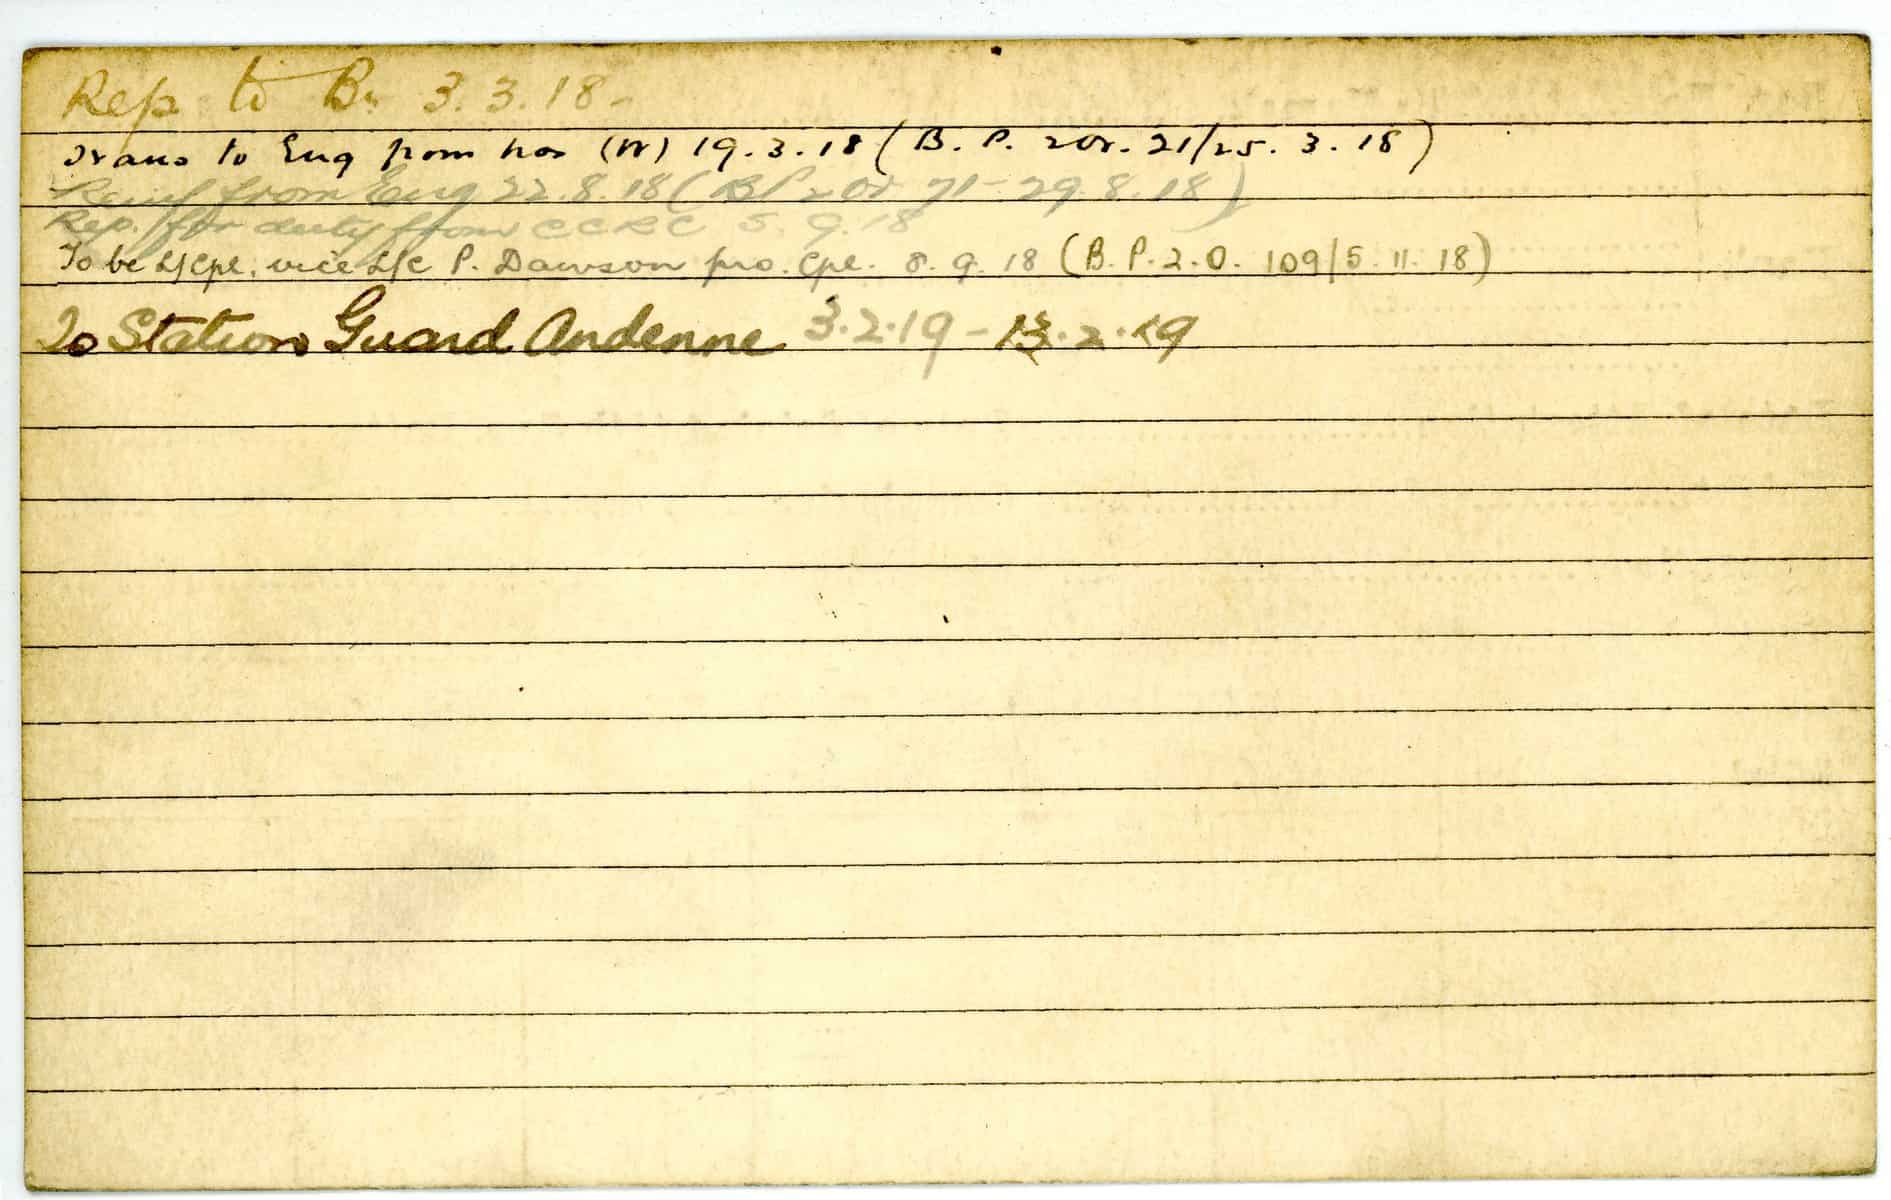 Rep to Bn 3.3.18-
Trans to Eng from hos (W) 19.3.18 (B. P. 2 Or. 21/25. 3. 18)
Reinf from Eng 22.8.18 (BP 2 Or 71-29.8.18)
Rep. for duty from CCRC 5.9.18
To be L/Cpl. vice L/c P. Dawson pro. Cpl. 8.9.18 (B.P.2.O. 109/5.11.18)
To Station Guard Andenne 3.2.19 - 13.2.19